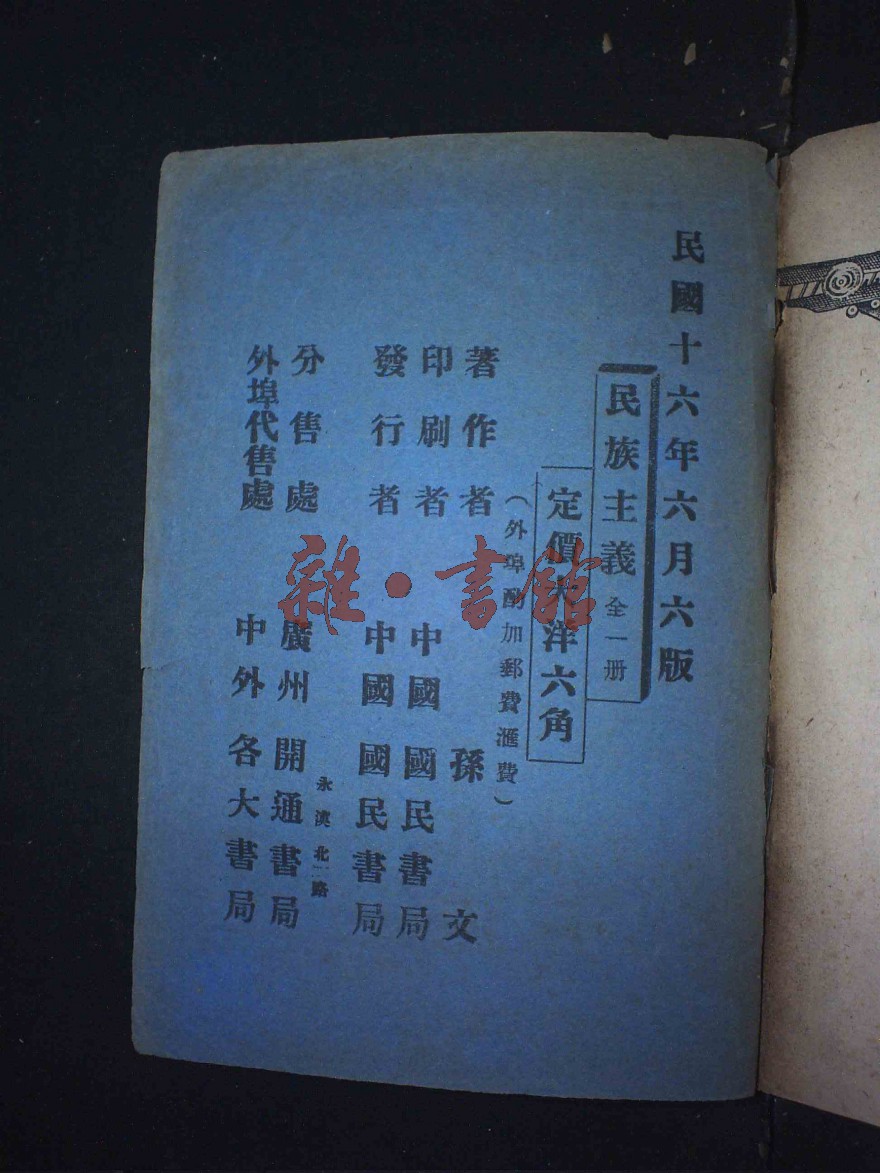 民國十六年六月六版
民族主義 全一册
定價大洋六角
（外埠酌加郵費滙費）
著作者 孫文
印刷者 中國國民書局
發行者 中國國民書局
分售處 廣州開通書局
永漢北路
外埠代售處 中外各大書局
雜·書館